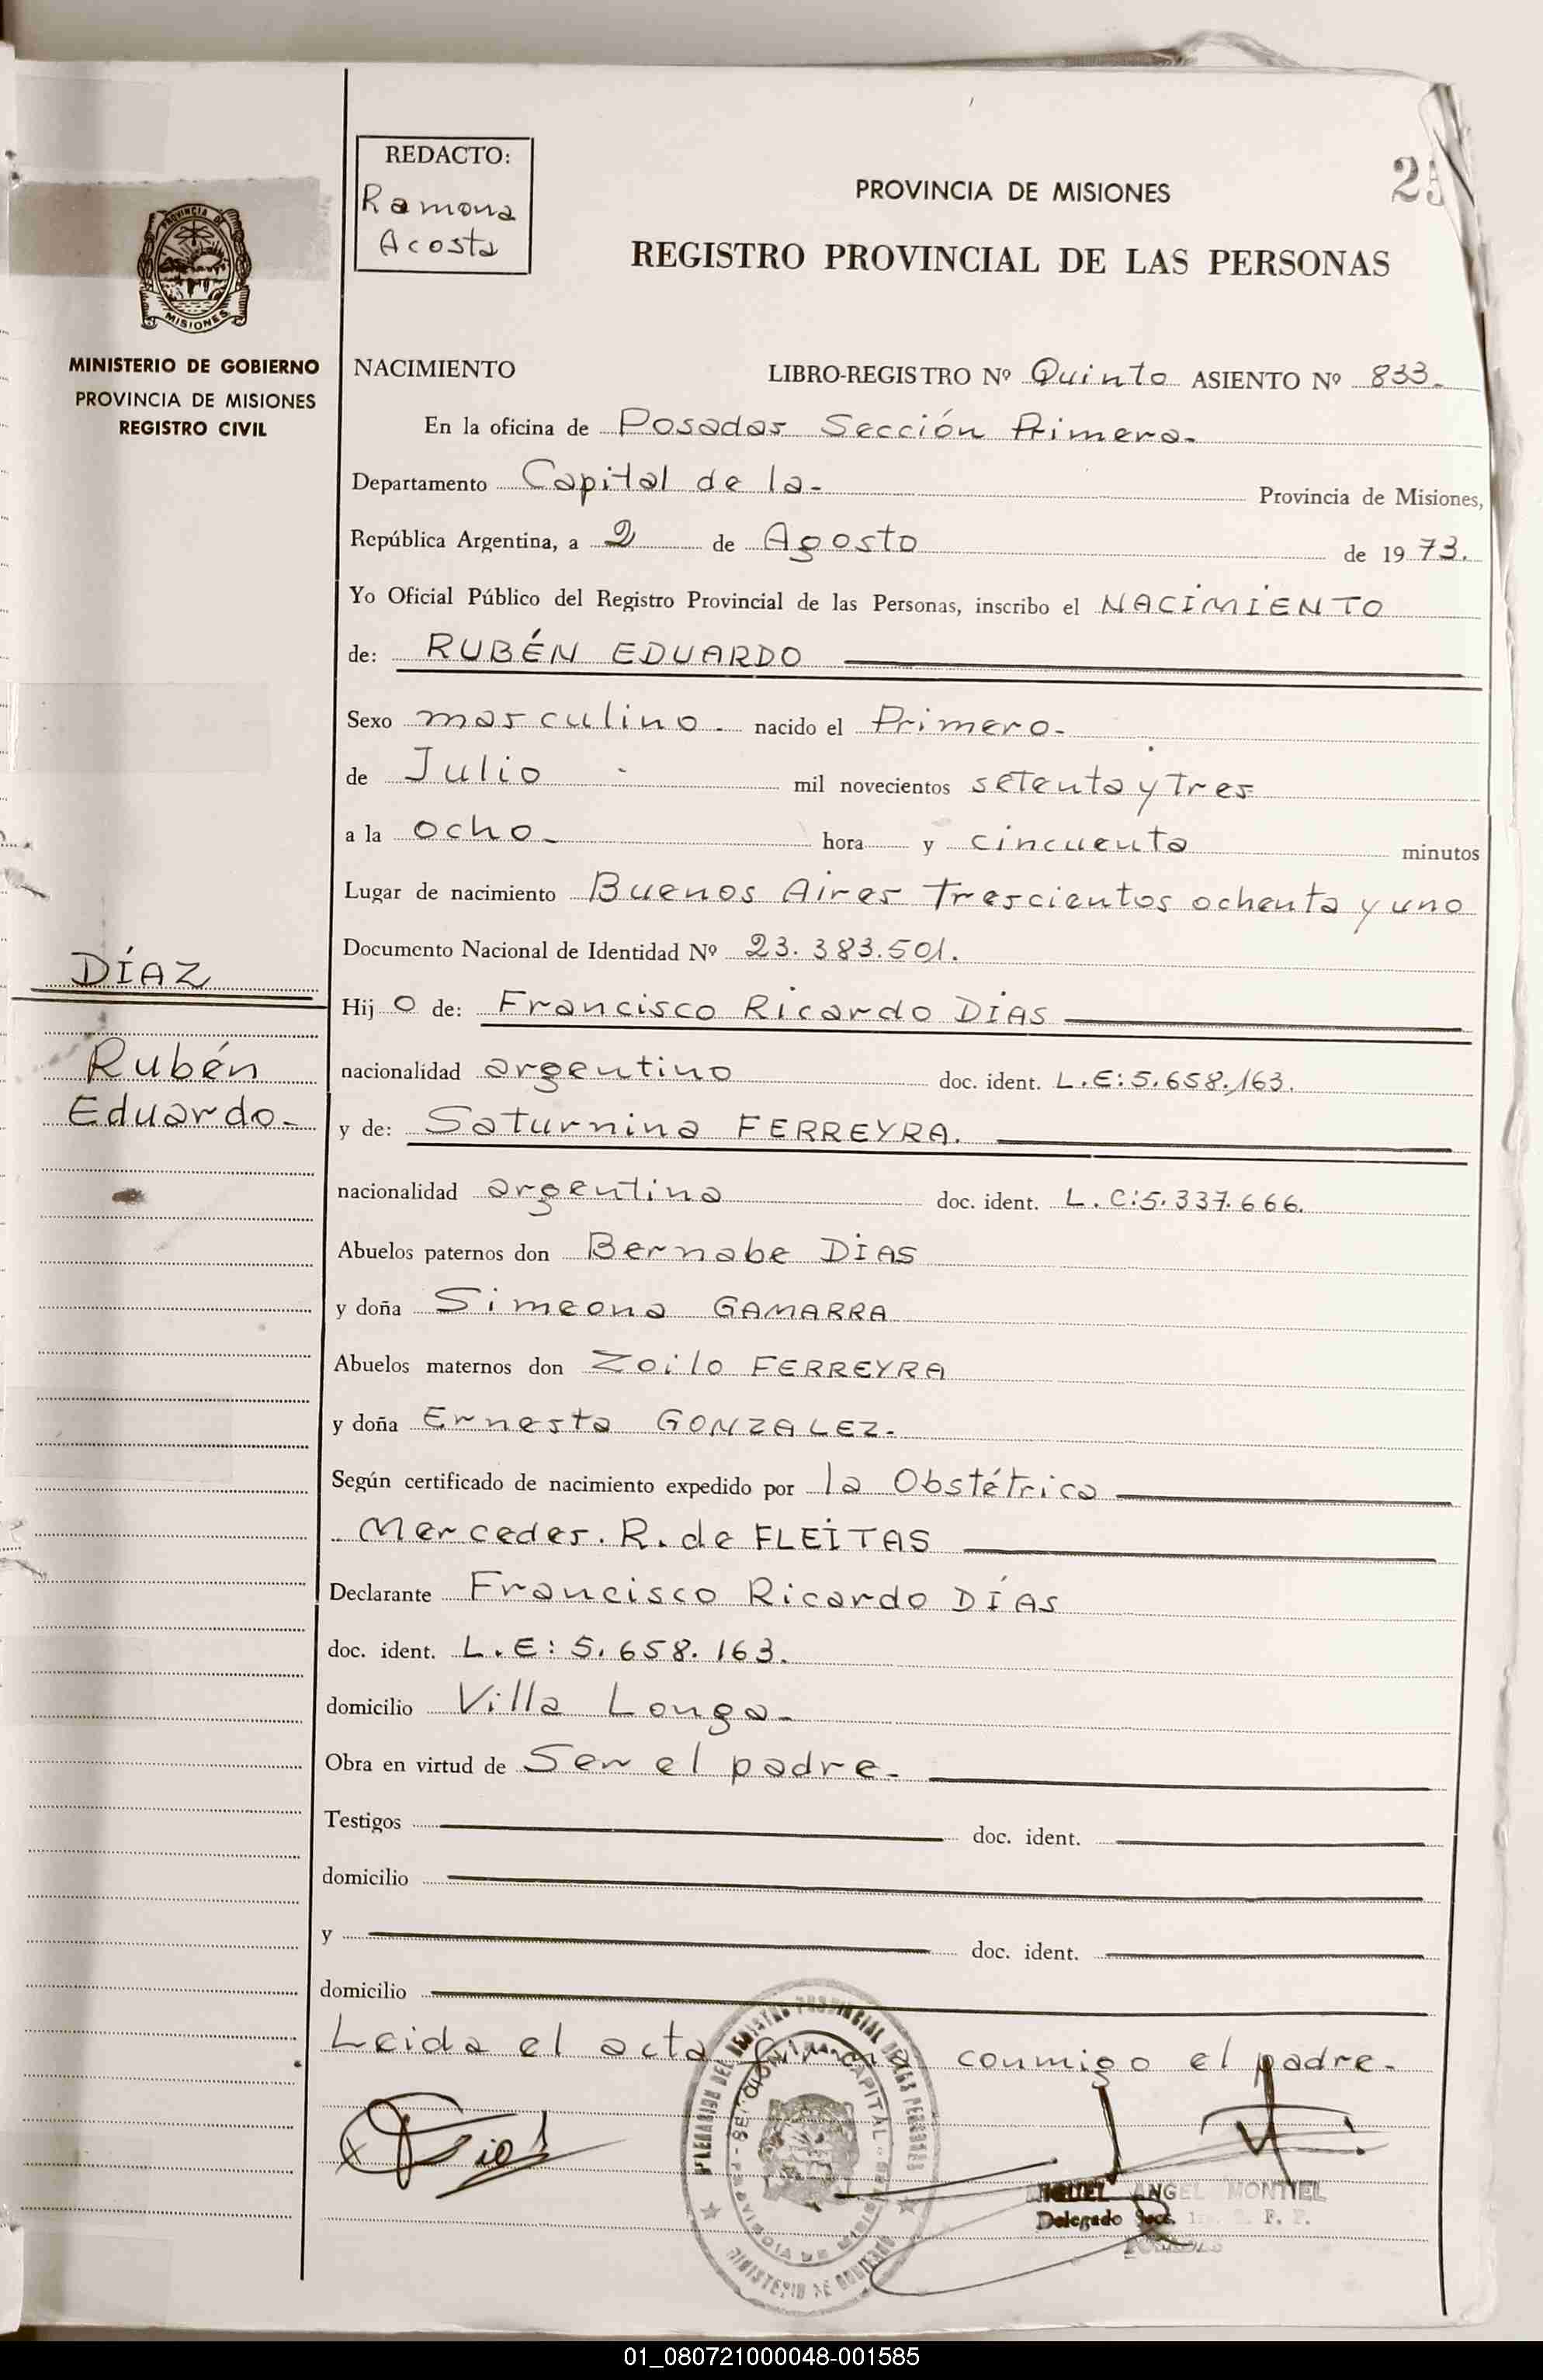 REDACTO:
Ramona
Acosta
PROVINCIA DE MISIONES
REGISTRO PROVINCIAL DE LAS PERSONAS
PROVINCIA DE
MISIONES
MINISTERIO DE GOBIERNO
PROVINCIA DE MISIONES
REGISTRO CIVIL
NACIMIENTO LIBRO-REGISTRO Nº Quinto ASIENTO Nº 833.
En la oficina de Posadas Sección Primera-
Departamento Capital de la- Provincia de Misiones,
República Argentina, a 2 de Agosto de 1973.
Yo Oficial Público del Registro Provincial de las Personas, inscribo el NACIMIENTO
de: RUBÉN EDUARDO
Sexo masculino- nacido el Primero-
de Julio - mil novecientos setenta y tres
a la ocho- hora y cincuenta minutos
Lugar de nacimiento Buenos Aires trescientos ochenta y uno
Documento Nacional de Identidad Nº 23.383.501.
DÍAZ
Hijo de: Francisco Ricardo DIAS
Rubén
nacionalidad argentino doc. ident. L.E:5.658.163.
Eduardo-
y de: Saturnina FERREYRA.
nacionalidad argentina doc. ident. L.C:5.337.666.
Abuelos paternos don Bernabe DIAS
y doña Simeona GAMARRA
Abuelos maternos don Zoilo FERREYRA
y doña Ernesta GONZALEZ-
Según certificado de nacimiento expedido por la Obstétrica
Mercedes. R. de FLEITAS
Declarante Francisco Ricardo DÍAS
doc. ident. L.E: 5.658.163.
domicilio Villa Longa-
Obra en virtud de Ser el padre-
Testigos doc. ident.
domicilio
y doc. ident.
domicilio
Leida el acta firma conmigo el padre-
MIGUEL ANGEL MONTIEL
Delegado Secc.
POSADAS
01_080721000048-001585